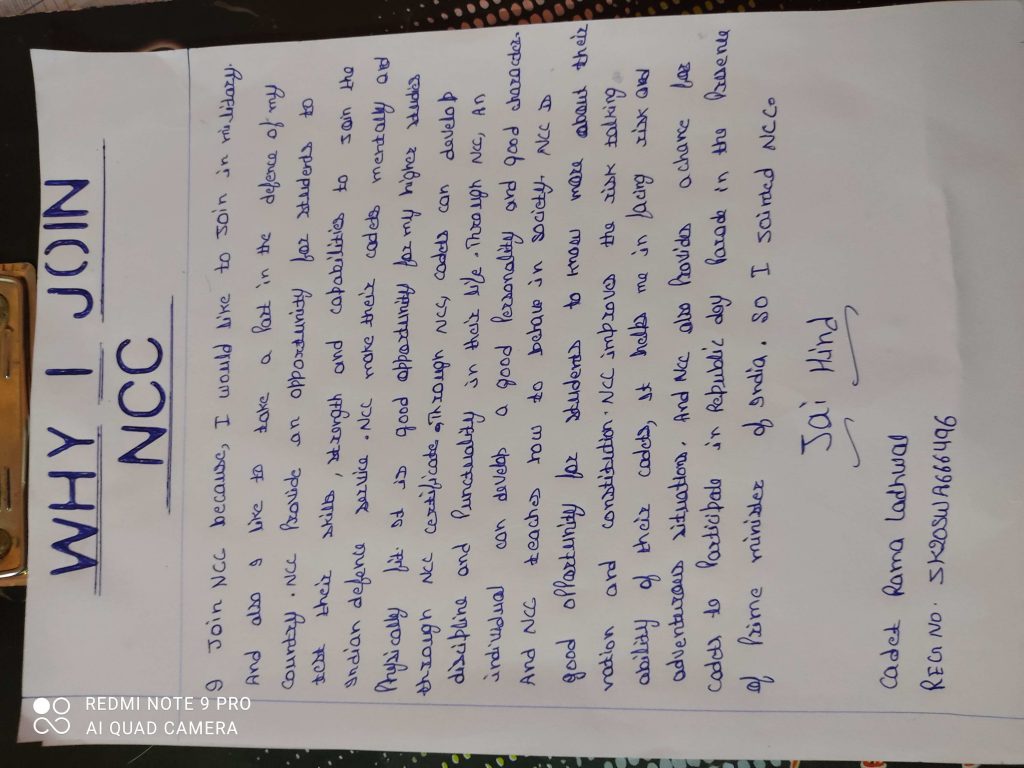 WHY I JOIN
NCC
I Join NCC because, I would like to Join in military.
And also I like to take a Part in the defence of my
Country. NCC Provide an opportunity for students to
test their skills, strength and capabilities to Join the
Indian defence service. NCC make their cadets mentally and
Physically fit. It is good opportunity for my higher studies
through NCC certificate. Through NCC, cadets can develop
discipline and Punctuality in their life. Through NCC, An
individual can develop a good Personality and good character.
And NCC teaches how to behave in Society. NCC is
good opportunity for students to know more about their
nation and constitution. NCC improves the risk talking
ability of their cadets, It helps me in facing risk and
adventurous situations. And NCC also Provides a chance for
Cadets to Participate in Republic day Parade in the Presence
of Prime minister of India. So I Joined NCC.
Jai Hind
Cadet Rama Ladhwal
REGn No. SK20SWA6666496
REDMI NOTE 9 PRO
AI QUAD CAMERA